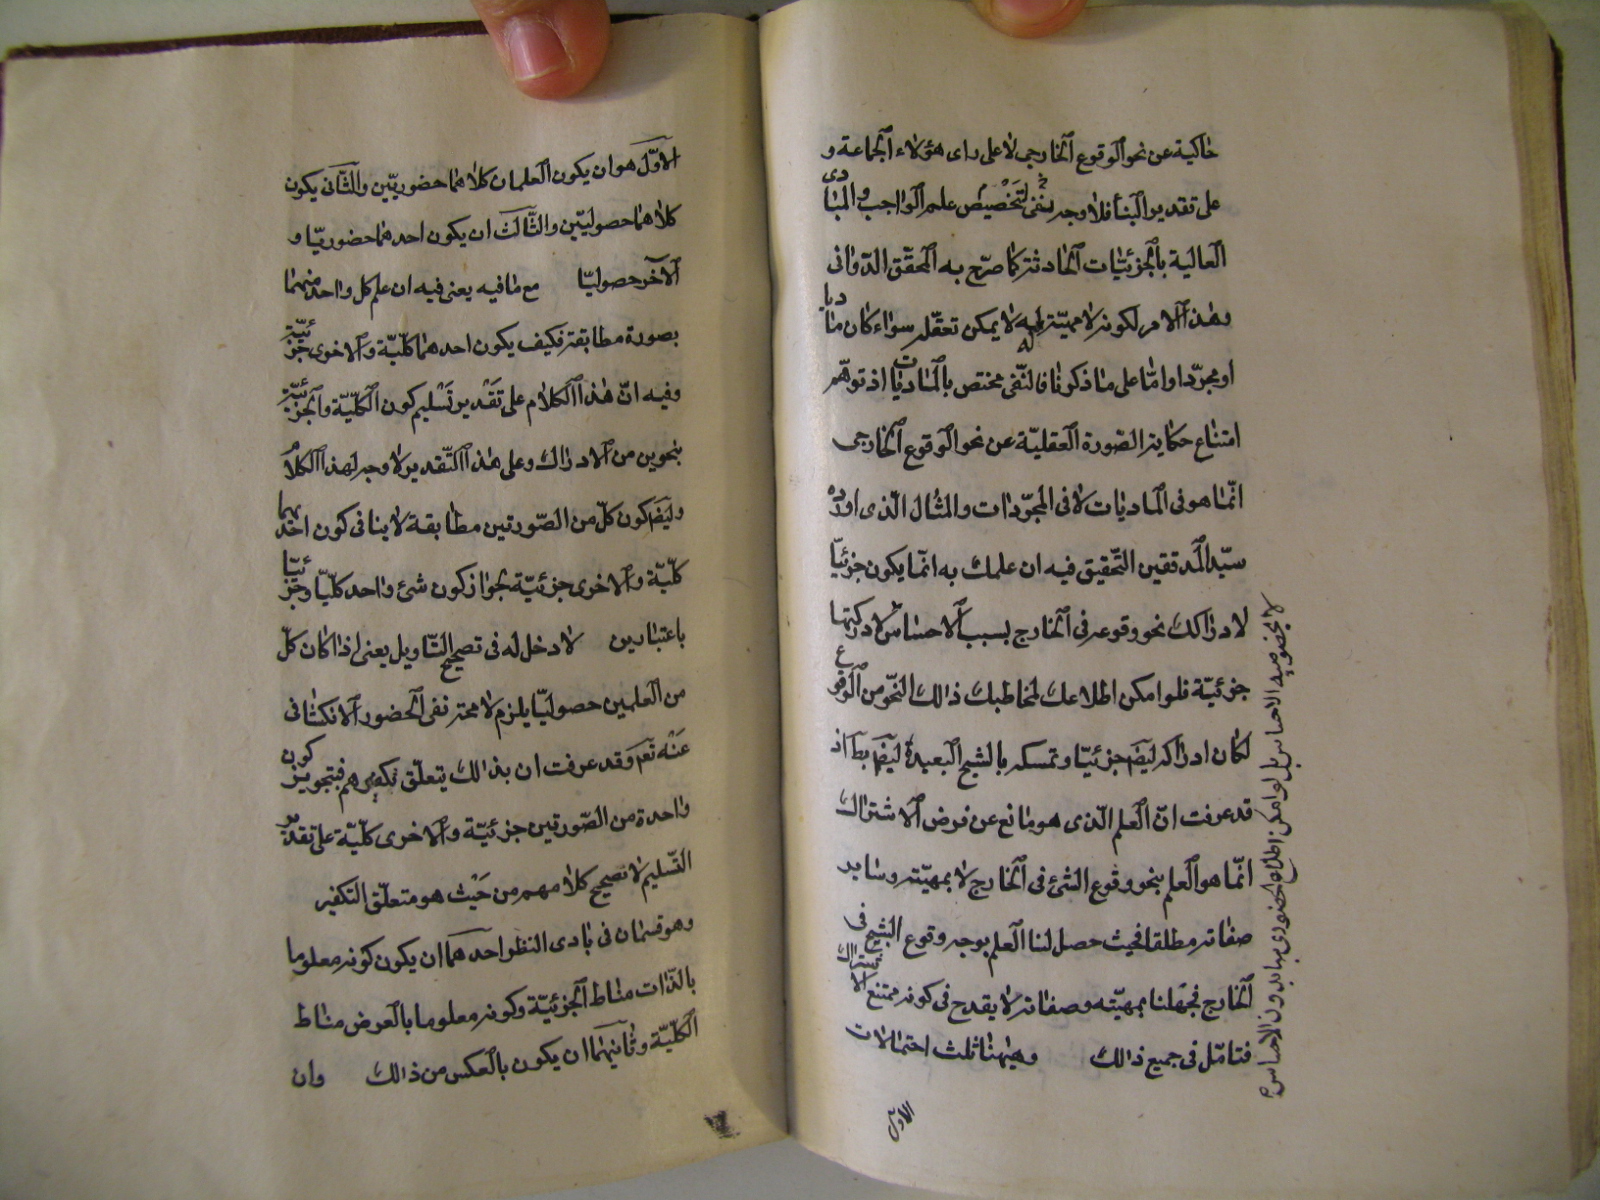 حاكية عن نحو الوقوع الخارجى لا على راى هؤلاء الجماعة و
على تقدير البناء فلا وجه لتخصيص علم الواجب والمبادى
العالية بالجزئيات الحادثة كما صرّح به المحقّق الدوانى
وهذا الامر لكونه لا مهيّة له لا يمكن تعقّله سواء كان ماديا
او مجرّدا واما على ما ذكرنا فالنفى مختص بالماديات اذ توهّم
امتناع حكاية الصّورة العقليّة عن نحو الوقوع الخارجى
انّما هو فى الماديات لا فى المجرّدات والمثال الّذى اورده
سيّد المدققين التّحقيق فيه ان علمك به انّما يكون جزئيّا
لادراكك نحو وقوعه فى الخارج بسبب الاحساس لا دركتها
جزئيّة فلو امكن اطلاعك لمخاطبك ذالك النّحو من الوقوع
لكان ادراكه ايضا جزئيّا وتمسكه بالشبح البعيد ايضا بط اذ
قد عرفت انّ العلم الّذى هو مانع عن فرض الاشتراك
انّما هو العلم بنحو وقوع الشئ فى الخارج لا بمهيّته وساير
صفاته مطلقا فحيث حصل لنا العلم بوجه وقوع الشبح فى
الخارج فجهلنا بمهيّته وصفاته لا يقدح فى كونه ممتنع الاشتراك
فتامّل فى جميع ذالك وهيهنا ثلث احتمالات
الاوّل
لا بخصوصية الاحساس بل لو امكن اطلاع حضورى بها بدون الاحساس
الاوّل هو ان يكون العلمان كلاهما حضوريّين والثّانى يكون
كلاهما حصوليّين والثّالث ان يكون احدهما حضوريّا و
الآخر حصوليّا مع ما فيه يعنى فيه ان علم كل واحد منهما
بصورة مطابقة فكيف يكون احدهما كلّيّة والاخرى جزئيّة
وفيه انّ هذا الكلام على تقدير تسليم كون الكلّيّة والجزئيّة
بنحوين من الادراك وعلى هذا التّقدير لا وجه لهذا الكلام
وايضا كون كلّ من الصّورتين مطابقة لا ينافى كون احدهما
كلّيّة والاخرى جزئيّة لجواز كون شئ واحد كلّيّا وجزئيّا
باعتبارين لا دخل له فى تصحيح التّاويل يعنى اذا كان كلّ
من العلمين حصوليّا يلزم لا محة نفى الحضور الانكشافى
عنه تعم وقد عرفت ان بذالك يتعلّق تكفيرهم فتجويز كون
واحدة من الصّورتين جزئيّة والاخرى كلّيّة على تقدير
التّسليم لا تصحيح كلامهم من حيث هو متعلّق التكفير
وهو قسمان فى بادى النظر احدهما ان يكون كونه معلوما
بالذّات مناط الجزئيّة وكونه معلوما بالعرض مناط
الكلّيّة وثانيهما ان يكون بالعكس من ذالك وان